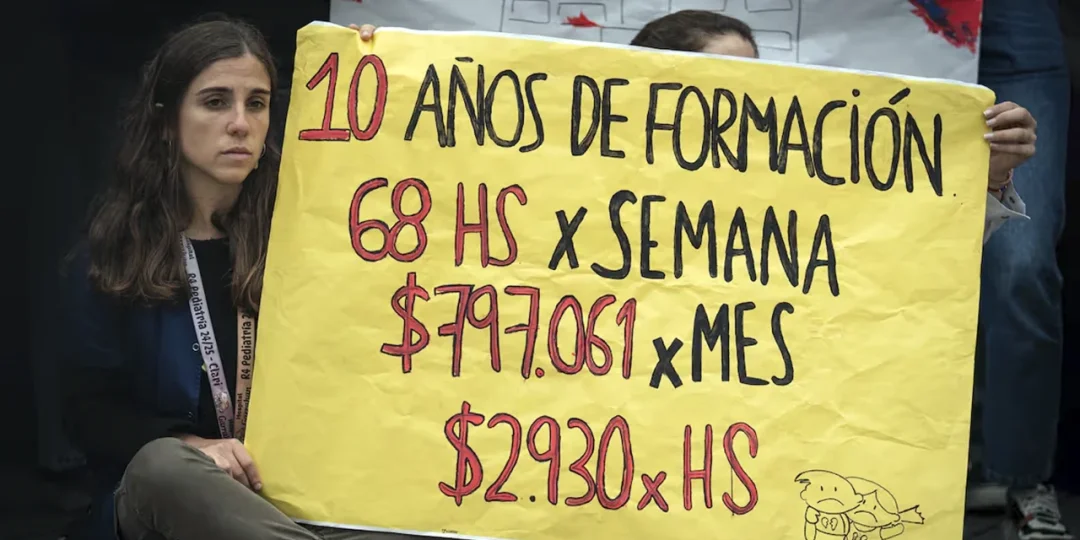 10 AÑOS DE FORMACIÓN
68 HS x SEMANA
$797.061 x MES
$2.930 x HS
R4 Pediatria 24/25 - Clari
R4 Pediatria
Hospital